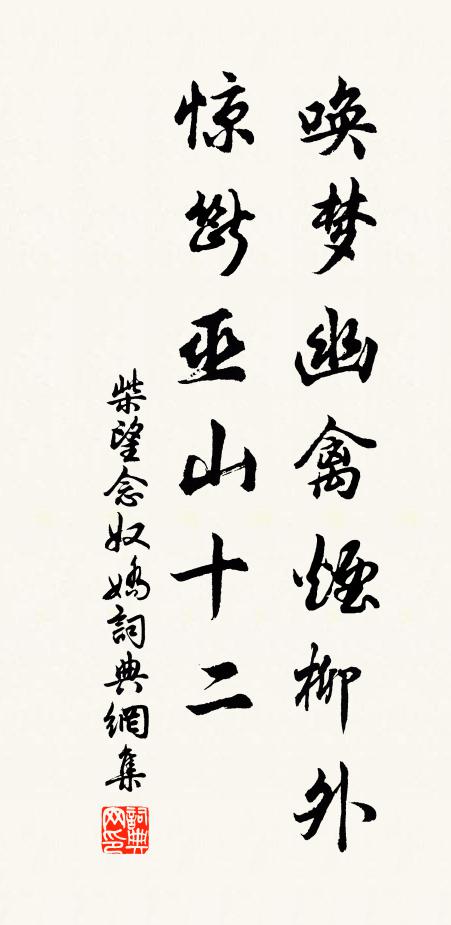 唤梦幽禽煙柳外
惊断巫山十二
柴望念奴娇詞典網集
詞典网印